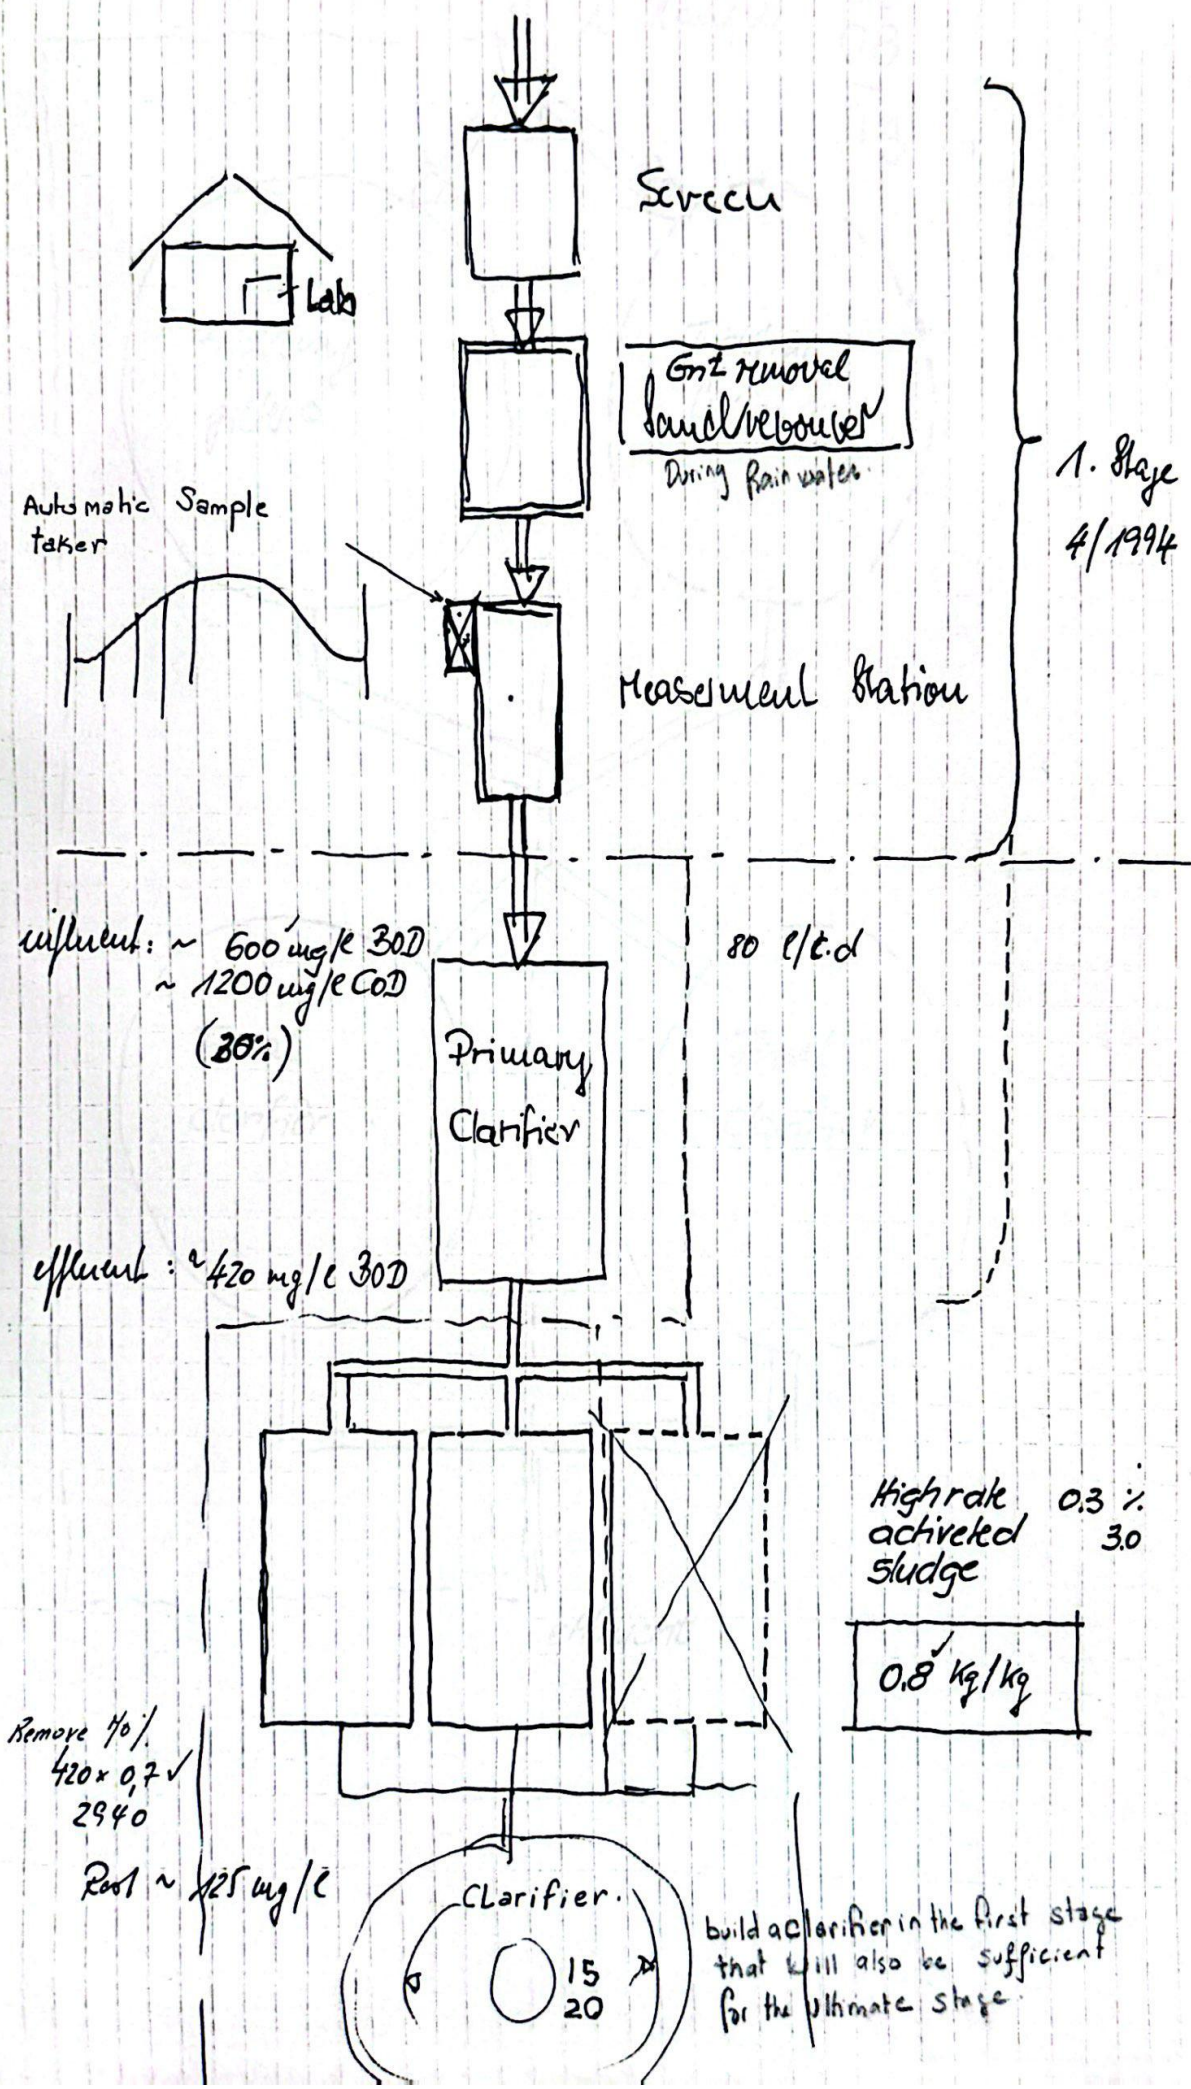 Screen
Lab
Grit removal
Sand remover
During Rain water.
1. Stage
4/1994
Automatic Sample
taker
Measerment Station
influent: ~ 600 mg/l BOD
~ 1200 mg/l COD
(30%)
80 l/c.d
Primary
Clarifier
effluent: ~ 420 mg/l BOD
High rate 0.3 %
activeted 3.0
sludge
0.8 kg/kg
Remove 70%
420 x 0,7 ✓
2940
Rest ~ 125 mg/l
CLarifier.
15
20
build a clarifier in the first stage
that will also be sufficient
for the Ultimate stage.